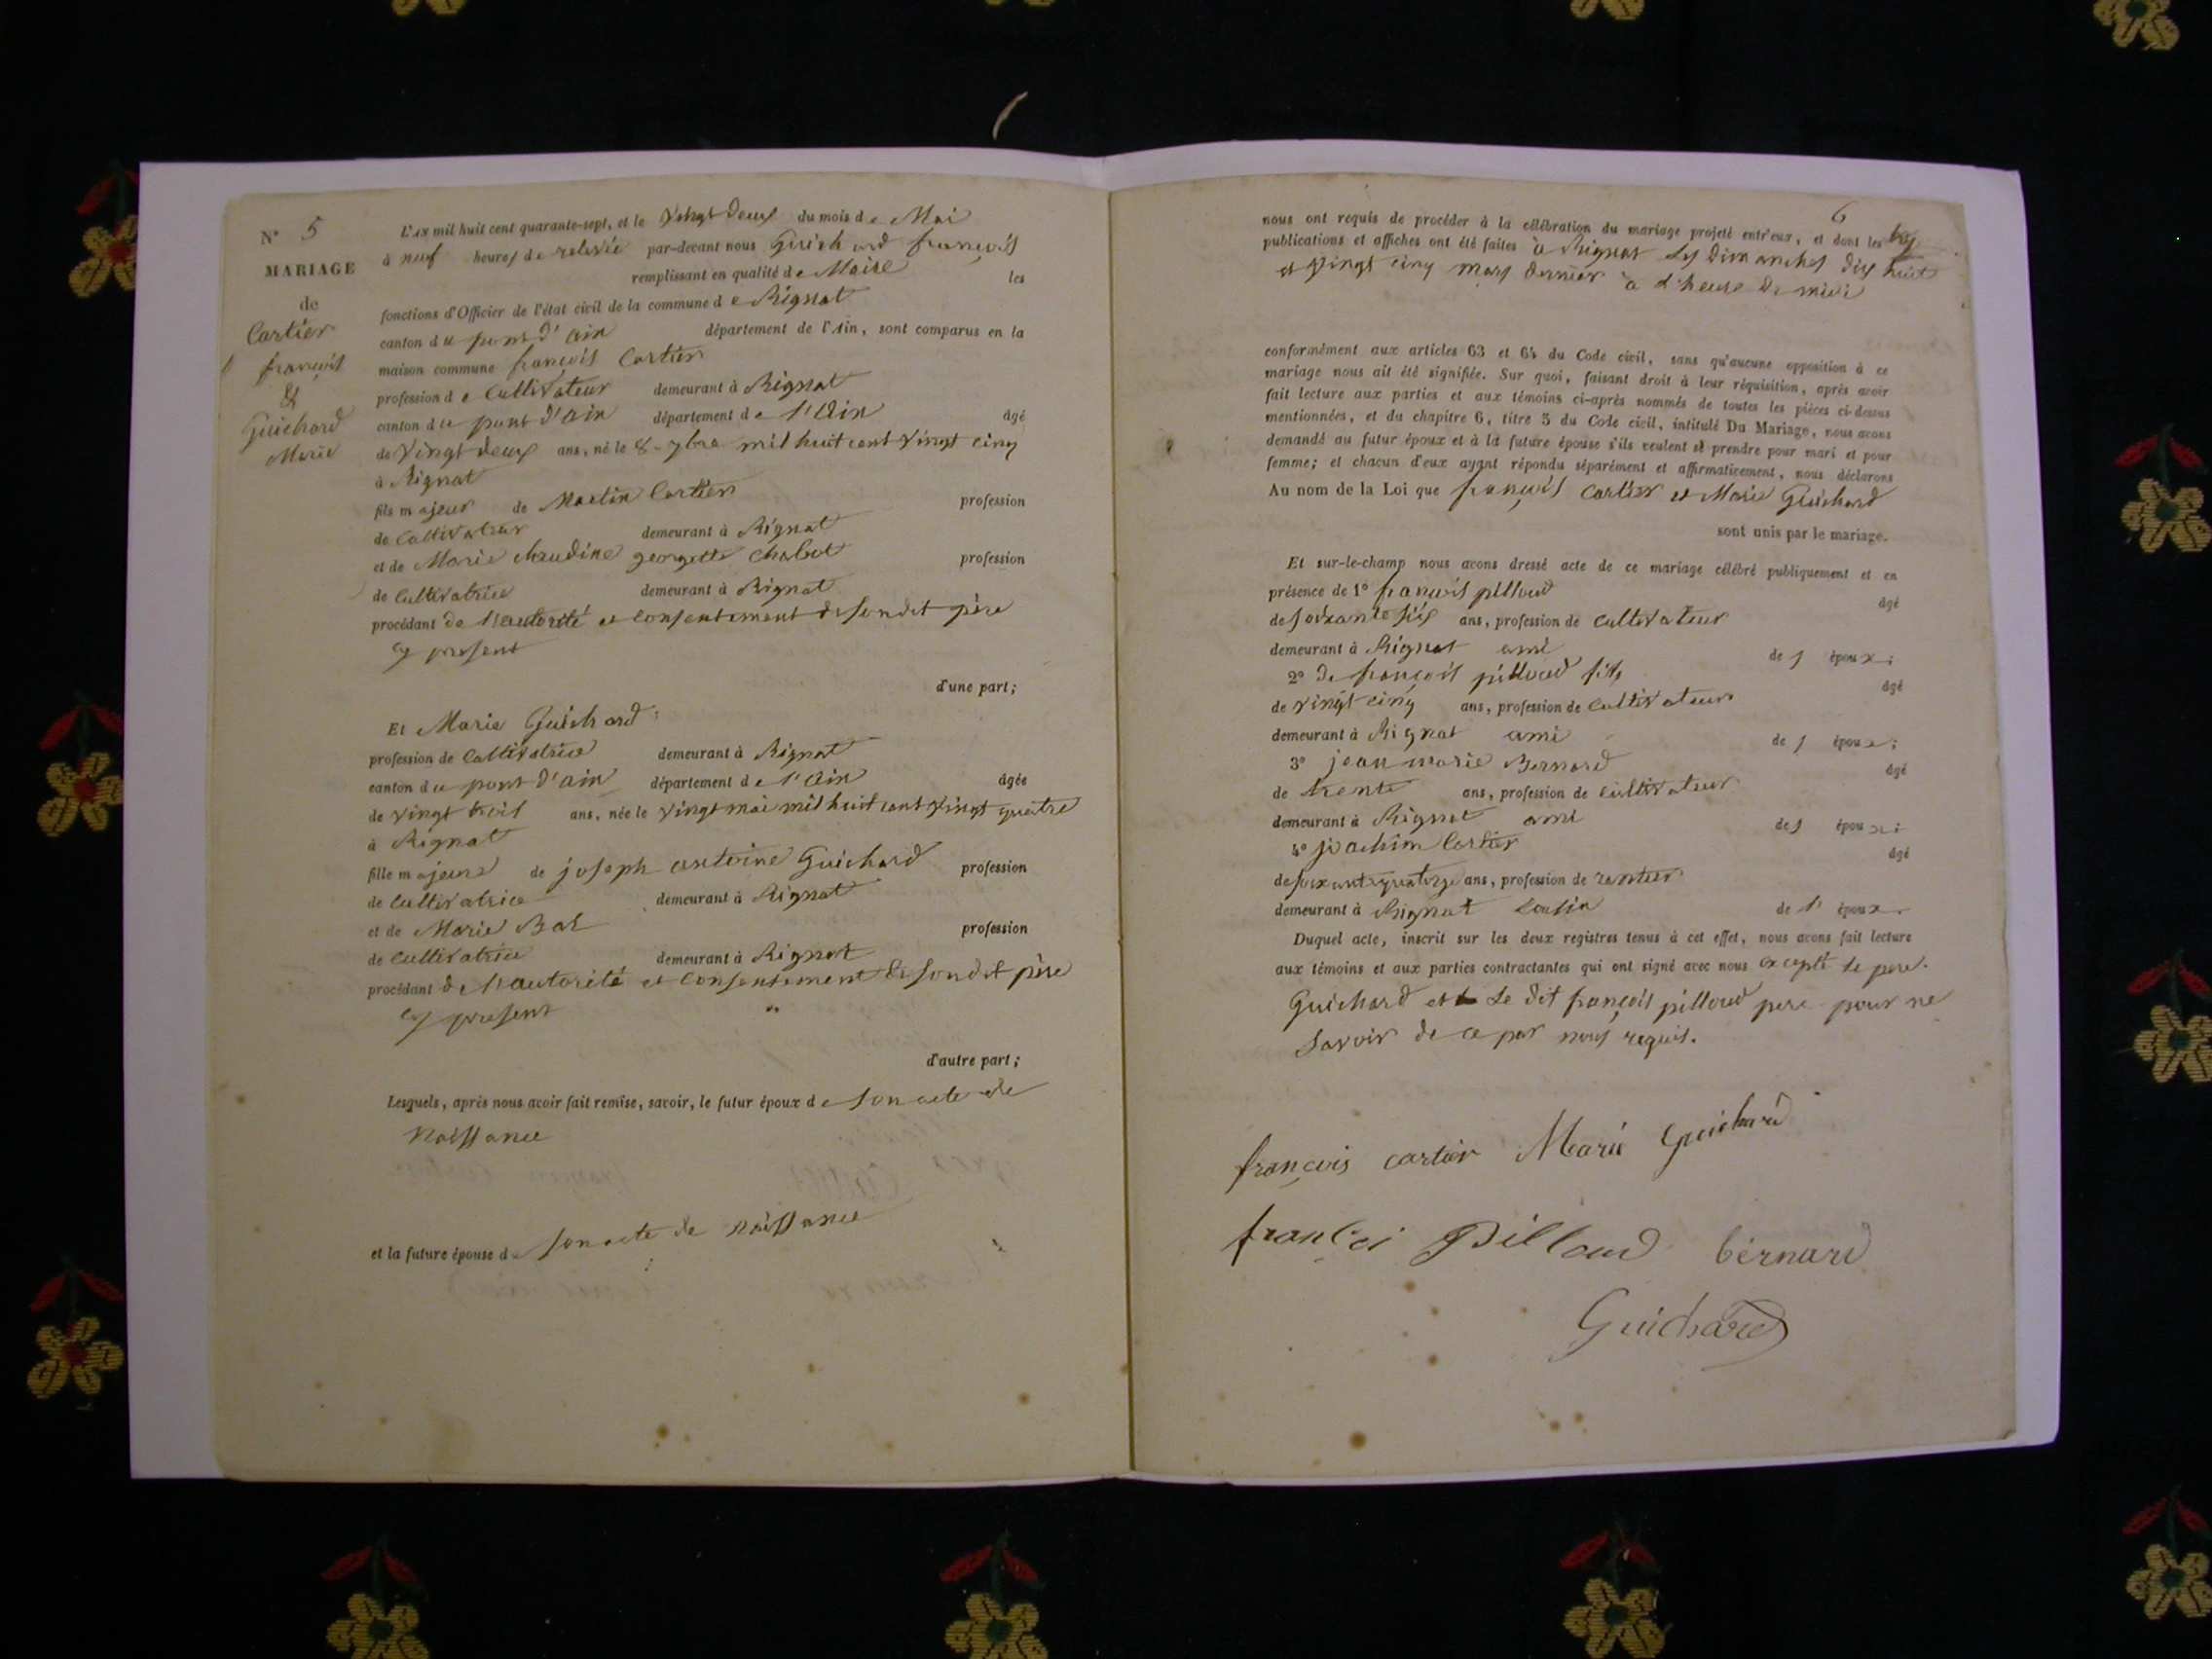 N° 5
MARIAGE
de
Cartier
françois
&
Guichard
Marie
L'AN mil huit cent quarante-sept, et le vingt deux du mois de Mai
à neuf heures de relevée par-devant nous Guichard françois
remplissant en qualité de Maire les
fonctions d'Officier de l'état civil de la commune de Rignat
canton du pont d'ain département de l'Ain, sont comparus en la
maison commune françois Cartier
profession de Cultivateur demeurant à Rignat
canton du pont d'ain département de l'Ain âgé
de vingt deux ans, né le 8 mil huit cent vingt cinq
à Rignat
fils majeur de Martin Cartier profession
de Cultivateur demeurant à Rignat
et de Marie Claudine georgette Chabot profession
de Cultivatrice demeurant à Rignat
procédant de l'autorité et consentement de son dit père
cy present
d'une part;
Et Marie Guichard
profession de Cultivatrice demeurant à Rignat
canton du pont d'ain département de l'Ain âgée
de vingt trois ans, née le vingt mai mil huit cent vingt quatre
à Rignat
fille majeure de joseph antoine Guichard profession
de Cultivatrice demeurant à Rignat
et de Marie profession
de Cultivatrice demeurant à Rignat
procédant de l'autorité et consentement de son dit père
cy present
d'autre part;
Lesquels, après nous avoir fait remise, savoir, le futur époux de son acte de
naissance
et la future épouse de son acte de naissance
6
nous ont requis de procéder à la célébration du mariage projeté entr'eux, et dont les
publications et affiches ont été faites à Rignat les dimanches dix huit
et vingt cinq mars dernier à l'heure de midi
conformément aux articles 63 et 64 du Code civil, sans qu'aucune opposition à ce
mariage nous ait été signifiée. Sur quoi, faisant droit à leur réquisition, après avoir
fait lecture aux parties et aux témoins ci-après nommés de toutes les pièces ci-dessus
mentionnées, et du chapitre 6, titre 5 du Code civil, intitulé Du Mariage, nous avons
demandé au futur époux et à la future épouse s'ils veulent se prendre pour mari et pour
femme; et chacun d'eux ayant répondu séparément et affirmativement, nous déclarons
Au nom de la Loi que françois Cartier et Marie Guichard
sont unis par le mariage.
Et sur-le-champ nous avons dressé acte de ce mariage célébré publiquement et en
présence de 1° françois pilloud âgé
de soixante six ans, profession de cultivateur
demeurant à Rignat ami des époux;
2° de françois pilloud fils âgé
de vingt cinq ans, profession de Cultivateur
demeurant à Rignat ami des époux;
3° jean marie Bernard âgé
de trente ans, profession de cultivateur
demeurant à Rignat ami des époux;
4° joachim Cartier âgé
de soixante quatorze ans, profession de rentier
demeurant à Rignat cousin de l'époux.
Duquel acte, inscrit sur les deux registres tenus à cet effet, nous avons fait lecture
aux témoins et aux parties contractantes qui ont signé avec nous excepté le pere
Guichard et Le dit françois pilloud pere pour ne
savoir de ce par nous requis.
françois cartier Marie Guichard
françoi Pilloud bernard
Guichard